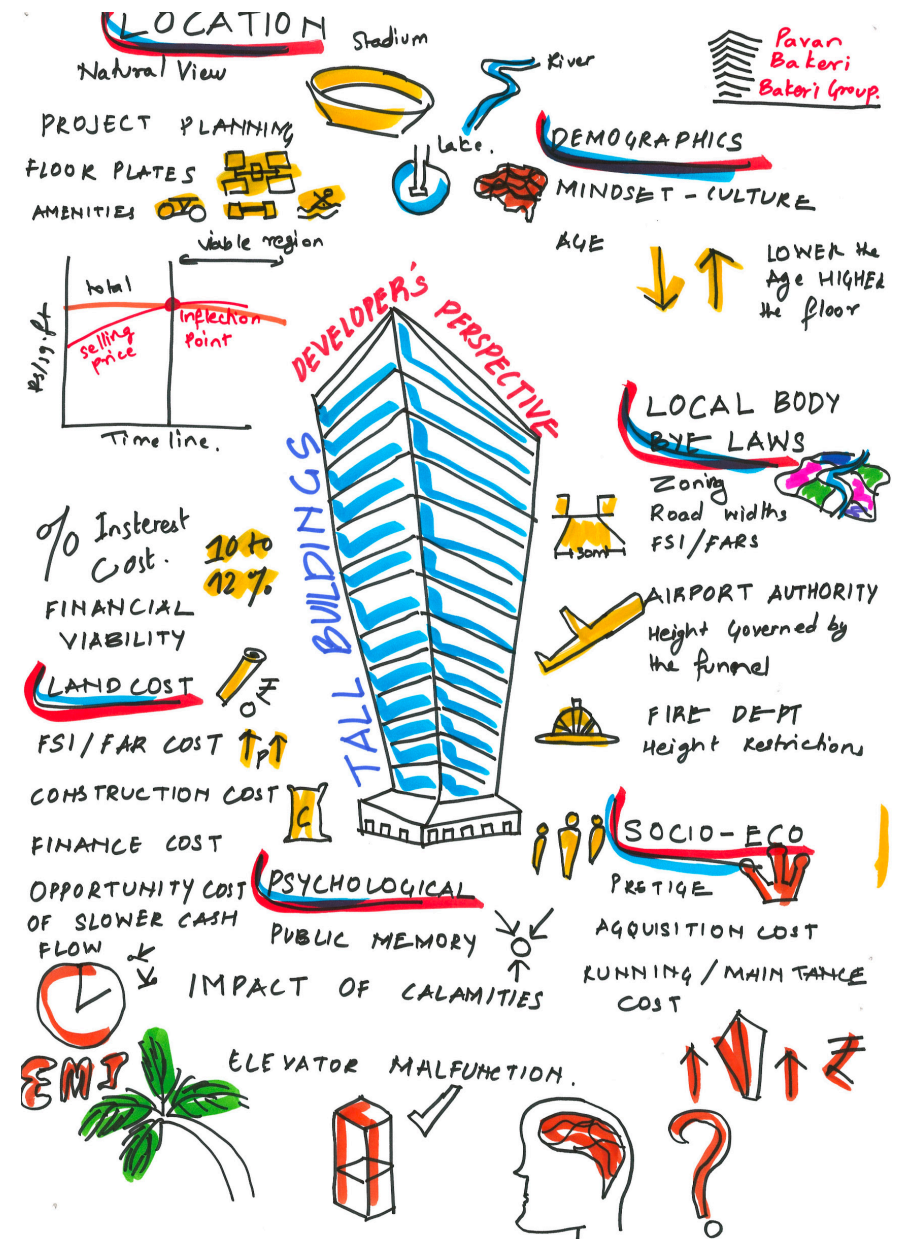 LOCATION
Natural View
Stadium
River
Lake.
Pavan
Bakeri
Bakeri Group.
PROJECT PLANNING
FLOOR PLATES
AMENITIES
DEMOGRAPHICS
MINDSET - CULTURE
AGE
LOWER the
Age HIGHER
the floor
viable region
total
Inflection
Point
selling
price
Rs/sq.ft
Time line.
DEVELOPER'S PERSPECTIVE
TALL BUILDINGS
LOCAL BODY
BYE LAWS
Zoning
Road widths
FSI/FARS
30mt
% Insterest
Cost.
10 to
12 %
FINANCIAL
VIABILITY
AIRPORT AUTHORITY
Height Governed by
the funnel
FIRE DEPT
Height Restrictions
LAND COST
₹
FSI/FAR COST
P
CONSTRUCTION COST
C
FINANCE COST
OPPORTUNITY COST
OF SLOWER CASH
FLOW
PSYCHOLOGICAL
PUBLIC MEMORY
IMPACT OF CALAMITIES
ELEVATOR MALFUNCTION.
SOCIO-ECO
PRETIGE
AQQUISITION COST
RUNNING/MAINTANCE
COST
₹
EMI
?